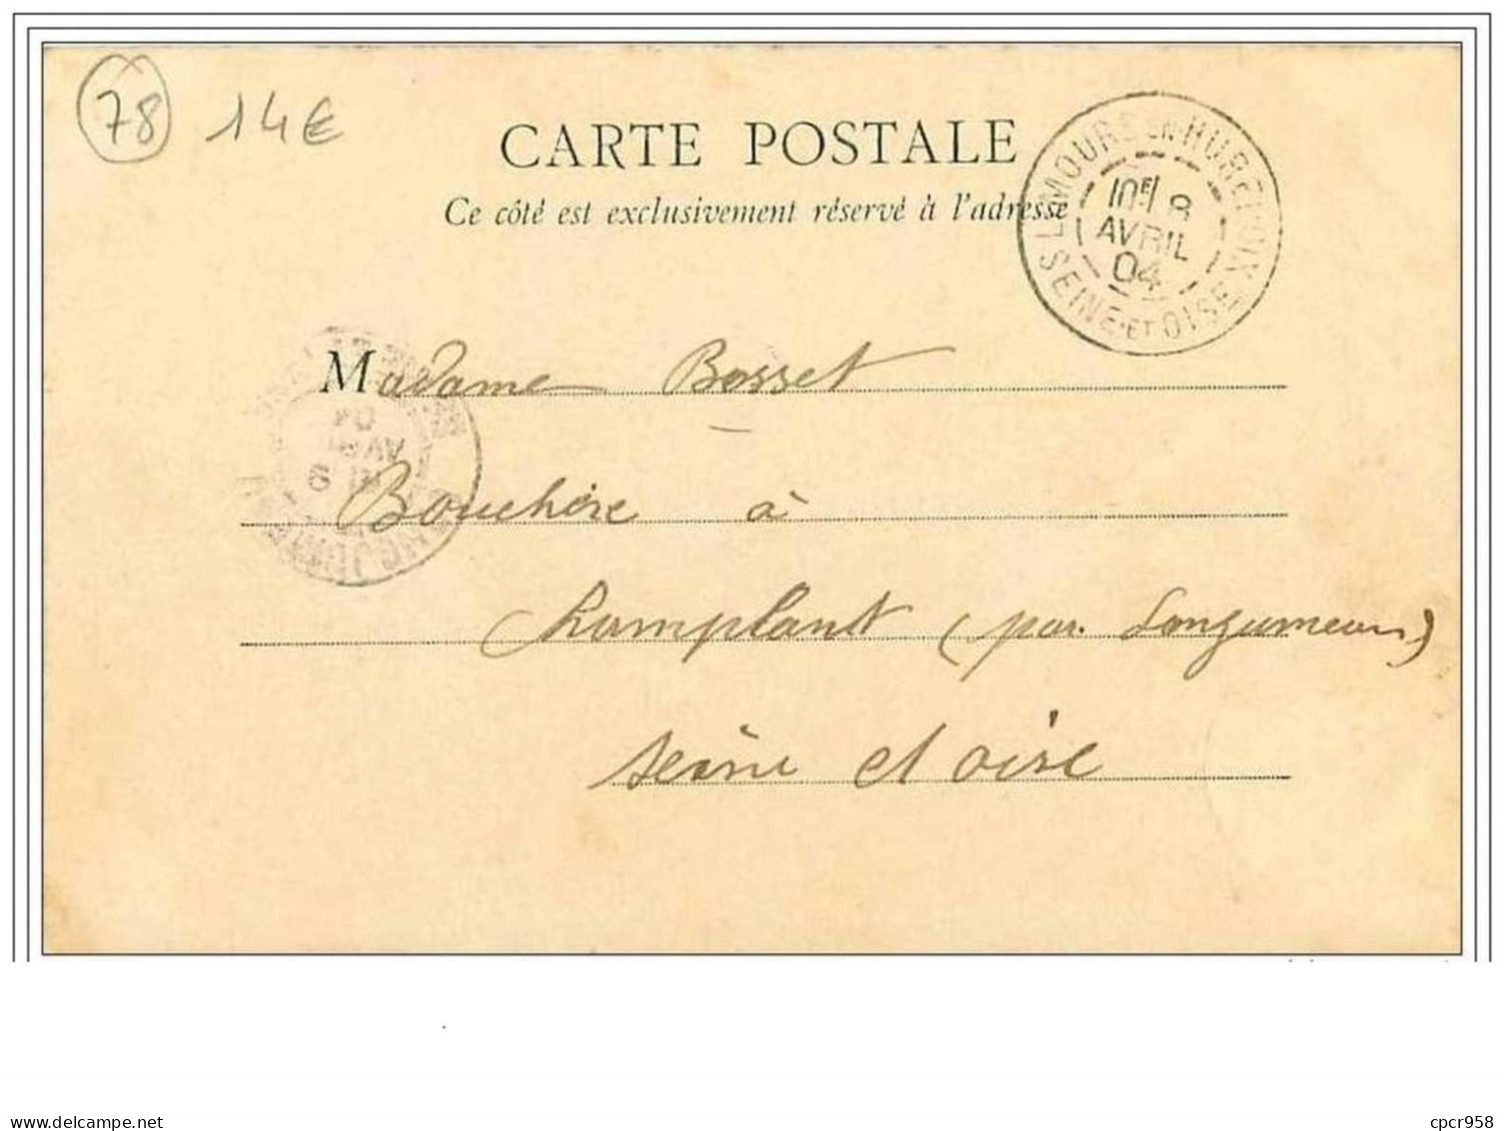 78 14€
CARTE POSTALE
Ce côté est exclusivement réservé à l'adresse
LIMOURS EN HUREPOIX
10E 8
AVRIL
04
SEINE-ET-OISE
Madame Bosset
Bouchère à
Champlant (par Longumeau)
seine et oise
www.delcampe.net
cpcr958